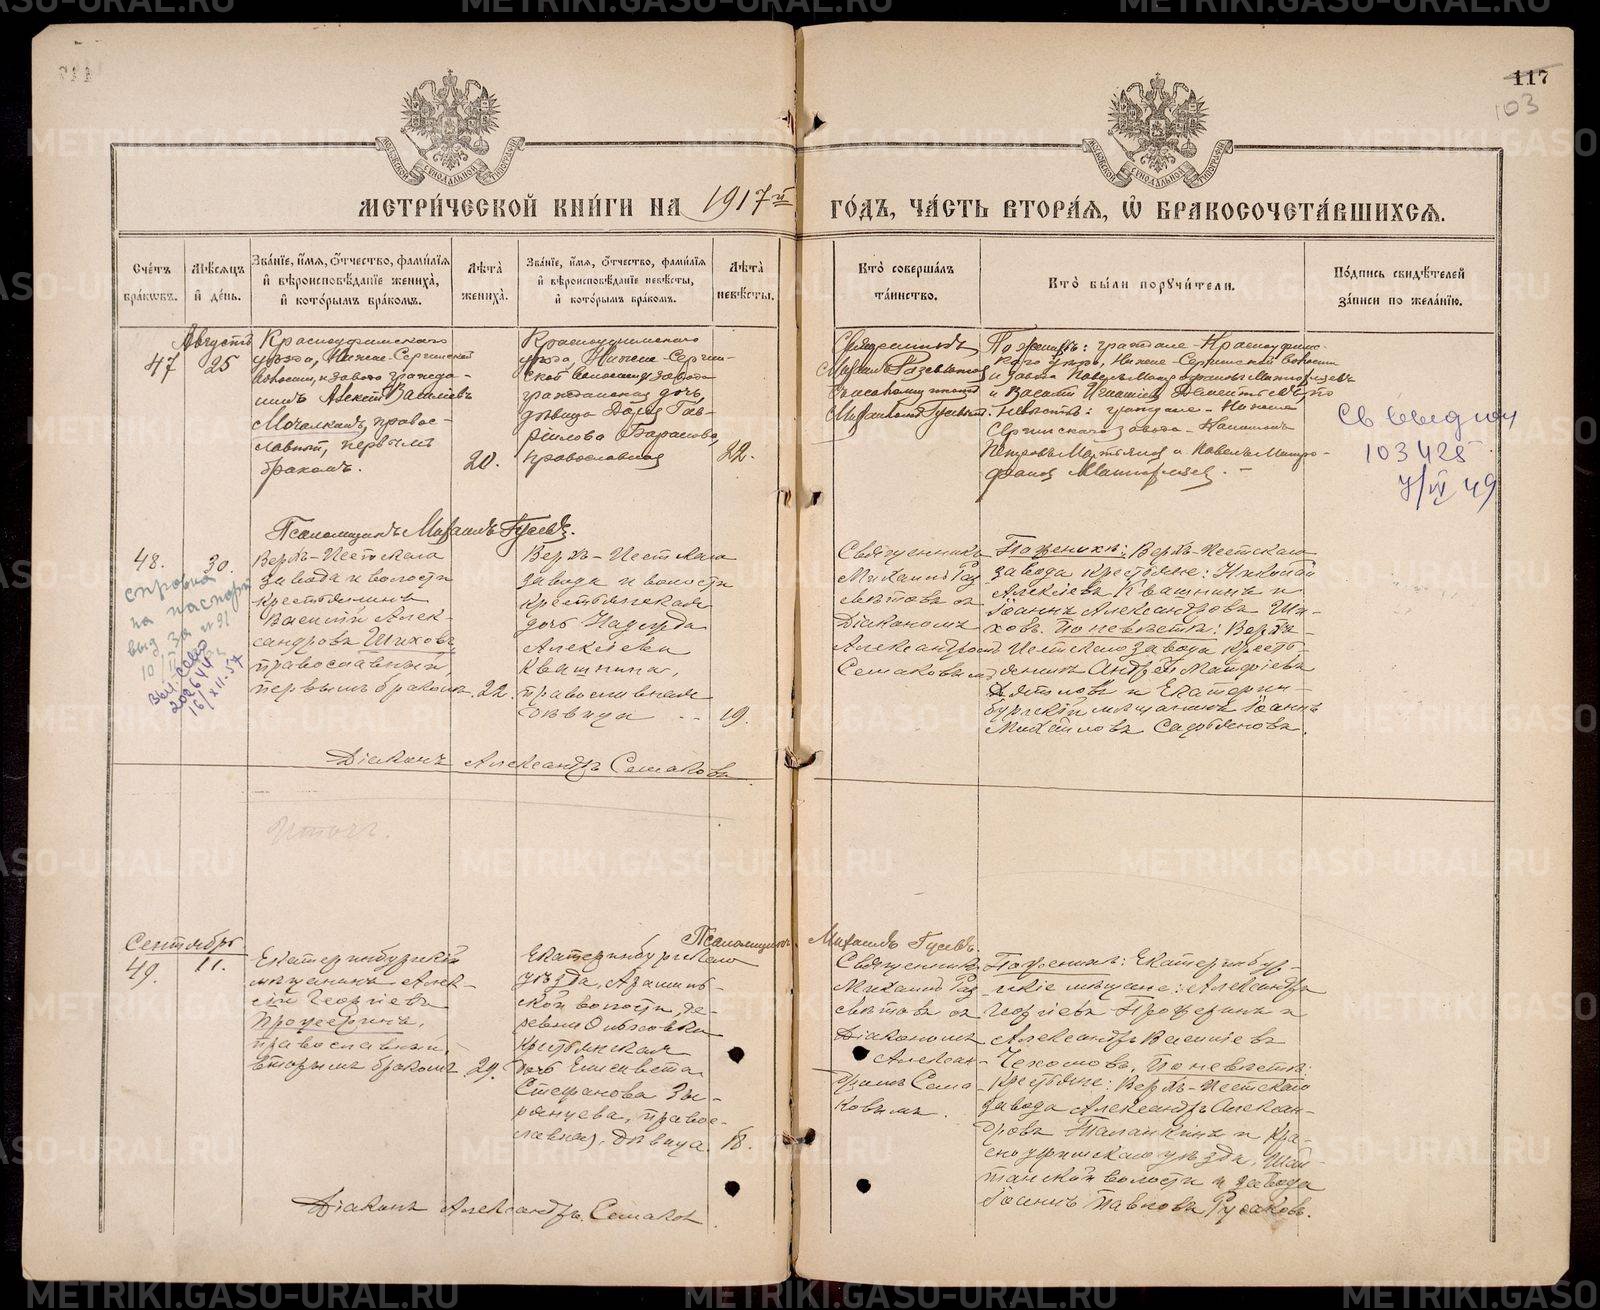 117
103
МЕТРИ́ЧЕСКОЙ КНИ́ГИ НА 1917й ГО́ДЪ, ЧА́СТЬ ВТОРА́Я, Ѡ БРАКОСОЧЕТА́ВШИХСЯ.
Сче́тъ бра́ковъ.
Мѣ́сяцъ и де́нь.
Зва́нїе, и́мя, о́тчество, фами́лїя
и вѣроисповѣ́данїе жениха̀,
и кото́рымъ бра́комъ.
Лѣта̀ жениха̀.
Зва́нїе, и́мя, о́тчество, фами́лїя
и вѣроисповѣ́данїе невѣ́сты,
и кото́рымъ бра́комъ.
Лѣта̀ невѣ́сты.
Кто̀ соверша́лъ
та́инство.
Кто̀ бы́ли поручи́тели.
По́дпись свидѣ́телей
за́писи по жела́нїю.
Августъ
47
25
Красноуфимскаго
уѣзда, Нижне-Сергинской
волости и завода гражда-
нинъ Алексѣй Васильевъ
Мочалкинъ, правос-
лавный, первымъ
бракомъ.
20.
Красноуфимскаго
уѣзда, Нижне-Сергин-
ской волости и завода
гражданская дочь
дѣвица Дарья Гав-
рилова Баранова,
православная
22.
Священникъ
Михаилъ Развѣтовъ
съ псаломщикомъ
Михаиломъ Гусевымъ.
По женихѣ: граждане Красноуфимс-
каго уѣзда, Нижне-Сергинской волости
и завода Павелъ Митрофановъ
и Василій Игнатьевъ
невѣстѣ: граждане Нижне
Сергинскаго завода
Петровъ и Павелъ Митро-
фановъ
Св выд
103425
7/IV 49
Псаломщикъ Михаилъ Гусевъ.
48.
30.
справка
на паспорт
выд. за № 91
10/
выд. св-во
202644
16/XII-57
Верхъ-Исетскаго
завода и волости
крестьянинъ
Василій Алек-
сандровъ Шиховъ,
православный,
первымъ бракомъ.
22.
Верхъ-Исетскаго
завода и волости
крестьянская
дочь Надежда
Алексѣева
Квашнина,
православная
дѣвица
19.
Священникъ
Михаилъ Раз-
вѣтовъ съ
Діакономъ
Александромъ
Семаковымъ
По женихѣ: Верхъ-Исетскаго
завода крестьяне: Николай
Алексѣевъ Квашнинъ и
Іоаннъ Александровъ Ши-
ховъ. По невѣстѣ: Верхъ-
Исетскаго завода кресть-
янинъ Андрей Матфіевъ
и Екатерин-
бургскій мѣщанинъ Іоаннъ
Михайловъ Садовяновъ.
Діаконъ Александръ Семаковъ
Итогъ.
Псаломщикъ Михаилъ Гусевъ.
Сентябрь
49.
11.
Екатеринбургскій
мѣщанинъ Алек-
сѣй Георгіевъ
Прожеринъ,
православный,
вторымъ бракомъ
29.
Екатеринбургскаго
уѣзда, Арамиль-
ской волости, де-
ревни
крестьянская
дочь Елисавета
Стефанова Зы-
рянцева, правос-
лавная, дѣвица.
18.
Священникъ
Михаилъ Раз-
вѣтовъ съ
Діакономъ
Алексан-
дромъ Сема-
ковымъ.
По женихѣ: Екатеринбур-
гскіе мѣщане: Александръ
Георгіевъ Прожеринъ и
Александръ Василіевъ
Чехомовъ. По невѣстѣ:
крестьяне: Верхъ-Исетскаго
завода Александръ Алексан-
дровъ Таланкинъ и Кра-
сноуфимскаго уѣзда, Шай-
танской волости и завода
Іоаннъ Павловъ Русаковъ.
Діаконъ Александръ Семаковъ.